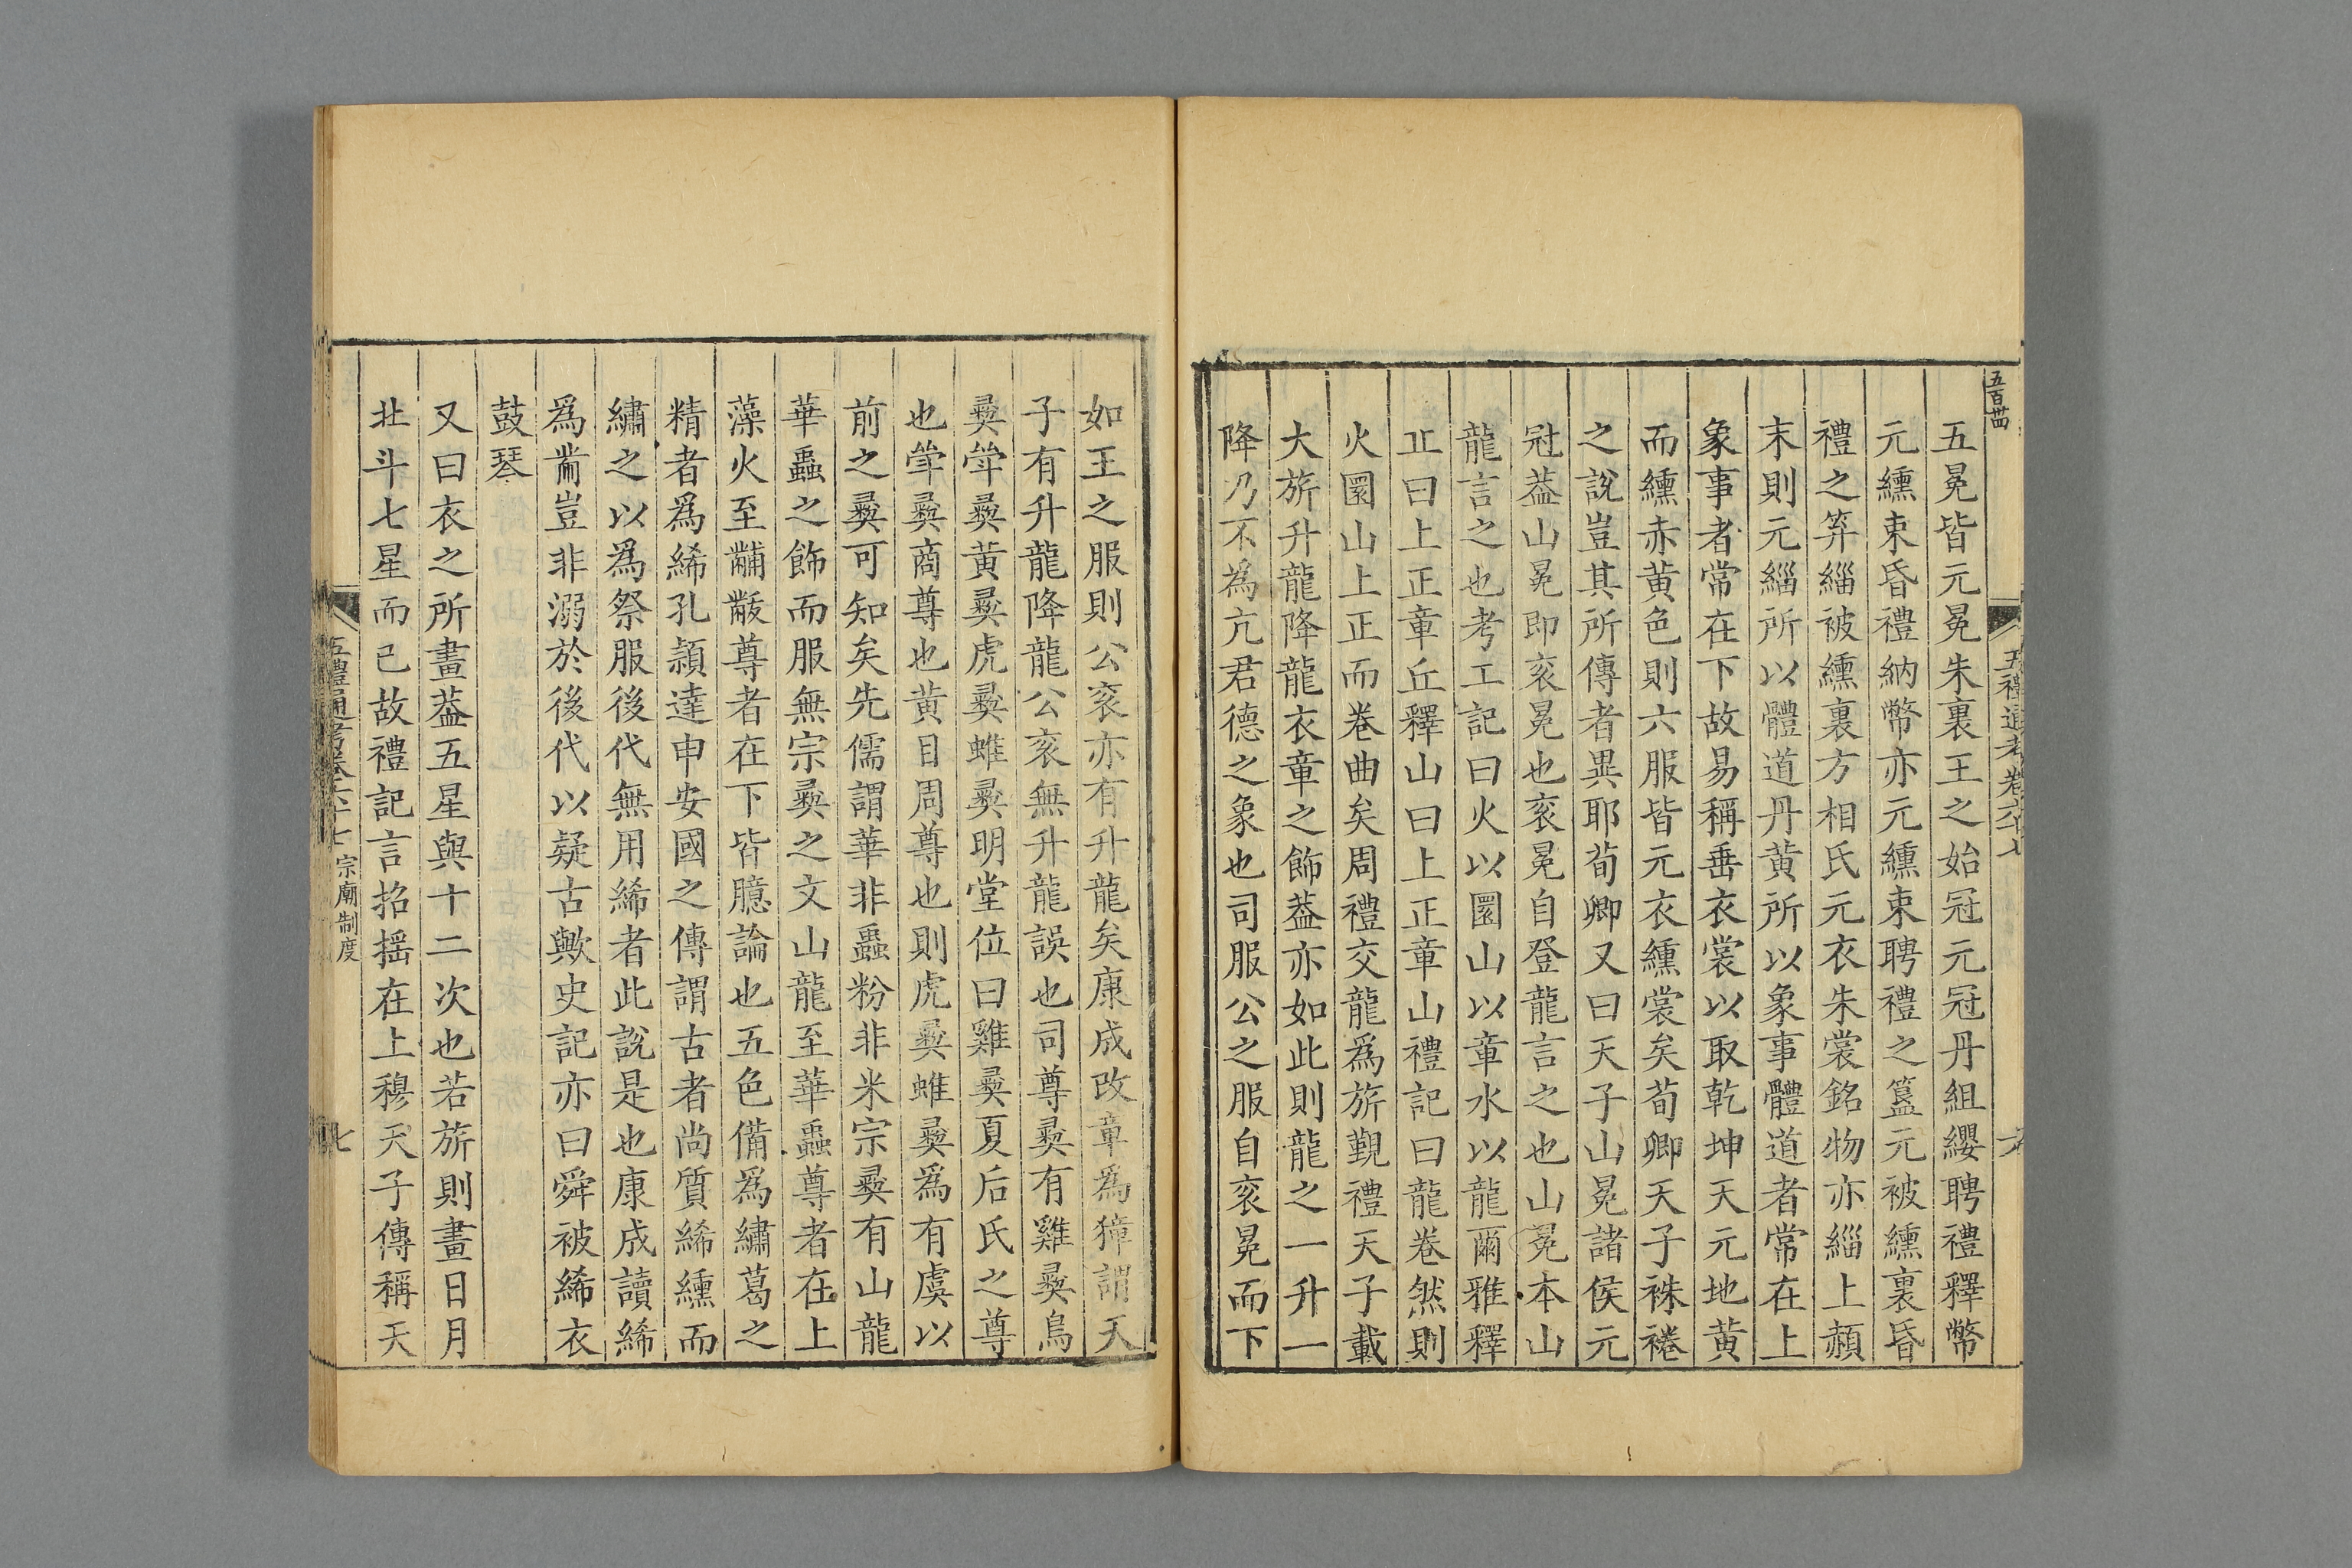 五百卌
五禮通考卷六十七
六
五冕皆元冕朱裏王之始冠元冠丹組纓聘禮釋幣
元纁束昏禮納幣亦元纁束聘禮之簋元被纁裏昏
禮之笲緇被纁裏方相氏元衣朱裳銘物亦緇上赬
末則元緇所以體道丹黃所以象事體道者常在上
象事者常在下故易稱垂衣裳以取乾坤天元地黃
而纁赤黃色則六服皆元衣纁裳矣荀卿天子袾裷
之說豈其所傳者異耶荀卿又曰天子山冕諸侯元
冠葢山冕即衮冕也衮冕自登龍言之也山冕本山
龍言之也考工記曰火以圜山以章水以龍爾雅釋
山曰上正章丘釋山曰上正章山禮記曰龍卷然則
火圜山上正而卷曲矣周禮交龍爲旂覲禮天子載
大旂升龍降龍衣章之飾葢亦如此則龍之一升一
降乃不為亢君德之象也司服公之服自衮冕而下
如王之服則公衮亦有升龍矣康成改章為獐謂天
子有升龍降龍公衮無升龍誤也司尊彛有雞彛鳥
彛斝彛黃彛虎彛蜼彛明堂位曰雞彛夏后氏之尊
也斝彛商尊也黃目周尊也則虎彛蜼彛爲有虞以
前之彛可知矣先儒謂華非蟲粉非米宗彛有山龍
華蟲之飾而服無宗彛之文山龍至華蟲尊者在上
藻火至黼黻尊者在下皆臆論也五色備爲繡葛之
精者爲絺孔穎達申安國之傳謂古者尚質絺纁而
繡之以爲祭服後代無用絺者此說是也康成讀絺
爲黹豈非溺於後代以疑古歟史記亦曰舜被絺衣
鼓琴
又曰衣之所畫葢五星與十二次也若旂則畫日月
北斗七星而已故禮記言招搖在上穆天子傳稱天
五禮通考卷六十七
宗廟制度
七